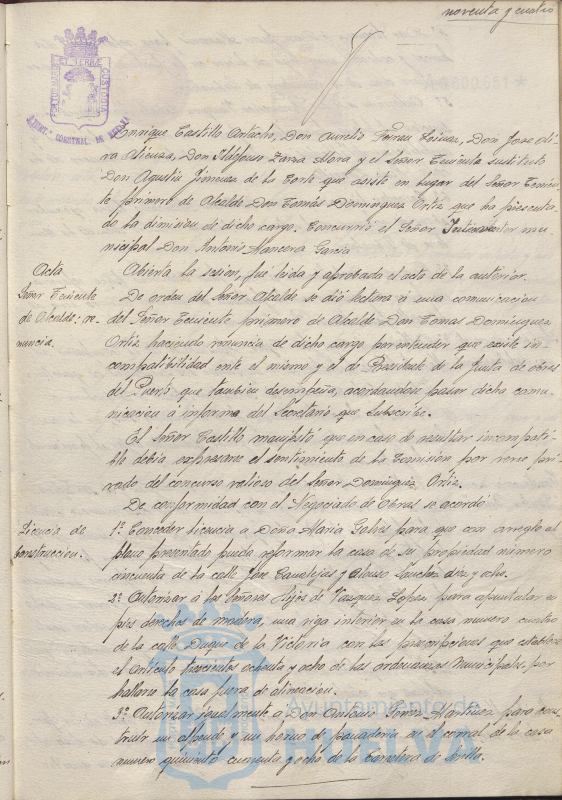 noventa y cuatro
PORTUS MARIS ET TERRAE CUSTODIA
AYUNT.º CONSTNAL. DE HUELVA
Enrique Castillo Artacho, Don Aurelio Don Jose Oli-
va Atienza, Don Ildefonso Zarza Mora y el Señor Teniente Sustituto
Don Agustin Jimenez de la Corte que asiste en lugar del Señor Tenien-
te primero de Alcalde Don Tomás Dominguez Ortiz que ha presenta-
do la dimision de dicho cargo. Concurrió el Señor Interventor mu-
nicipal Don Antonio Mancera Garcia
Acta
Abierta la sesion, fue leida y aprobada el acta de la anterior.
Señor Teniente
de Alcalde: re-
nuncia.
De orden del Señor Alcalde se dió lectura á una comunicacion
del Señor Teniente primero de Alcalde Don Tomas Dominguez
Ortiz haciendo renuncia de dicho cargo por entender que existe in-
compatibilidad entre el mismo y el de Presidente de la Junta de obras
del Puerto que tambien desempeña, acordandose pasar dicha comu-
nicacion á informe del Secretario que subscribe.
El Señor Castillo manifestó que en caso de resultar incompati-
ble debia expresarse el sentimiento de la Comisión por verse pri-
vado del concurso valioso del Señor Dominguez Ortiz.
De conformidad con el Negociado de Obras se acordó
Licencia de
construccion.
1º Conceder licencia a Doña Maria Galvez para que con arreglo al
plano presentado pueda reformar la casa de su propiedad número
cincuenta de la calle Jose Canalejas y Alonso Sanchez diez y ocho.
2º Autorizar á los Señores Hijos de Vazquez Lopez para apuntalar con
pies derechos de madera, una viga interior en la casa numero cuatro
de la calle Duque de la Victoria con las prescripciones que establece
el artículo trescientos ochenta y ocho de las ordenanzas Municipales por
hallarse la casa fuera de alineacion.
3º Autorizar igualmente a Don Antonio Martinez para cons-
truir un y un horno de panaderia en el corral de la casa
numero quinientos cincuenta y ocho de la Carretera de Sevilla.
Ayuntamiento de
HUELVA